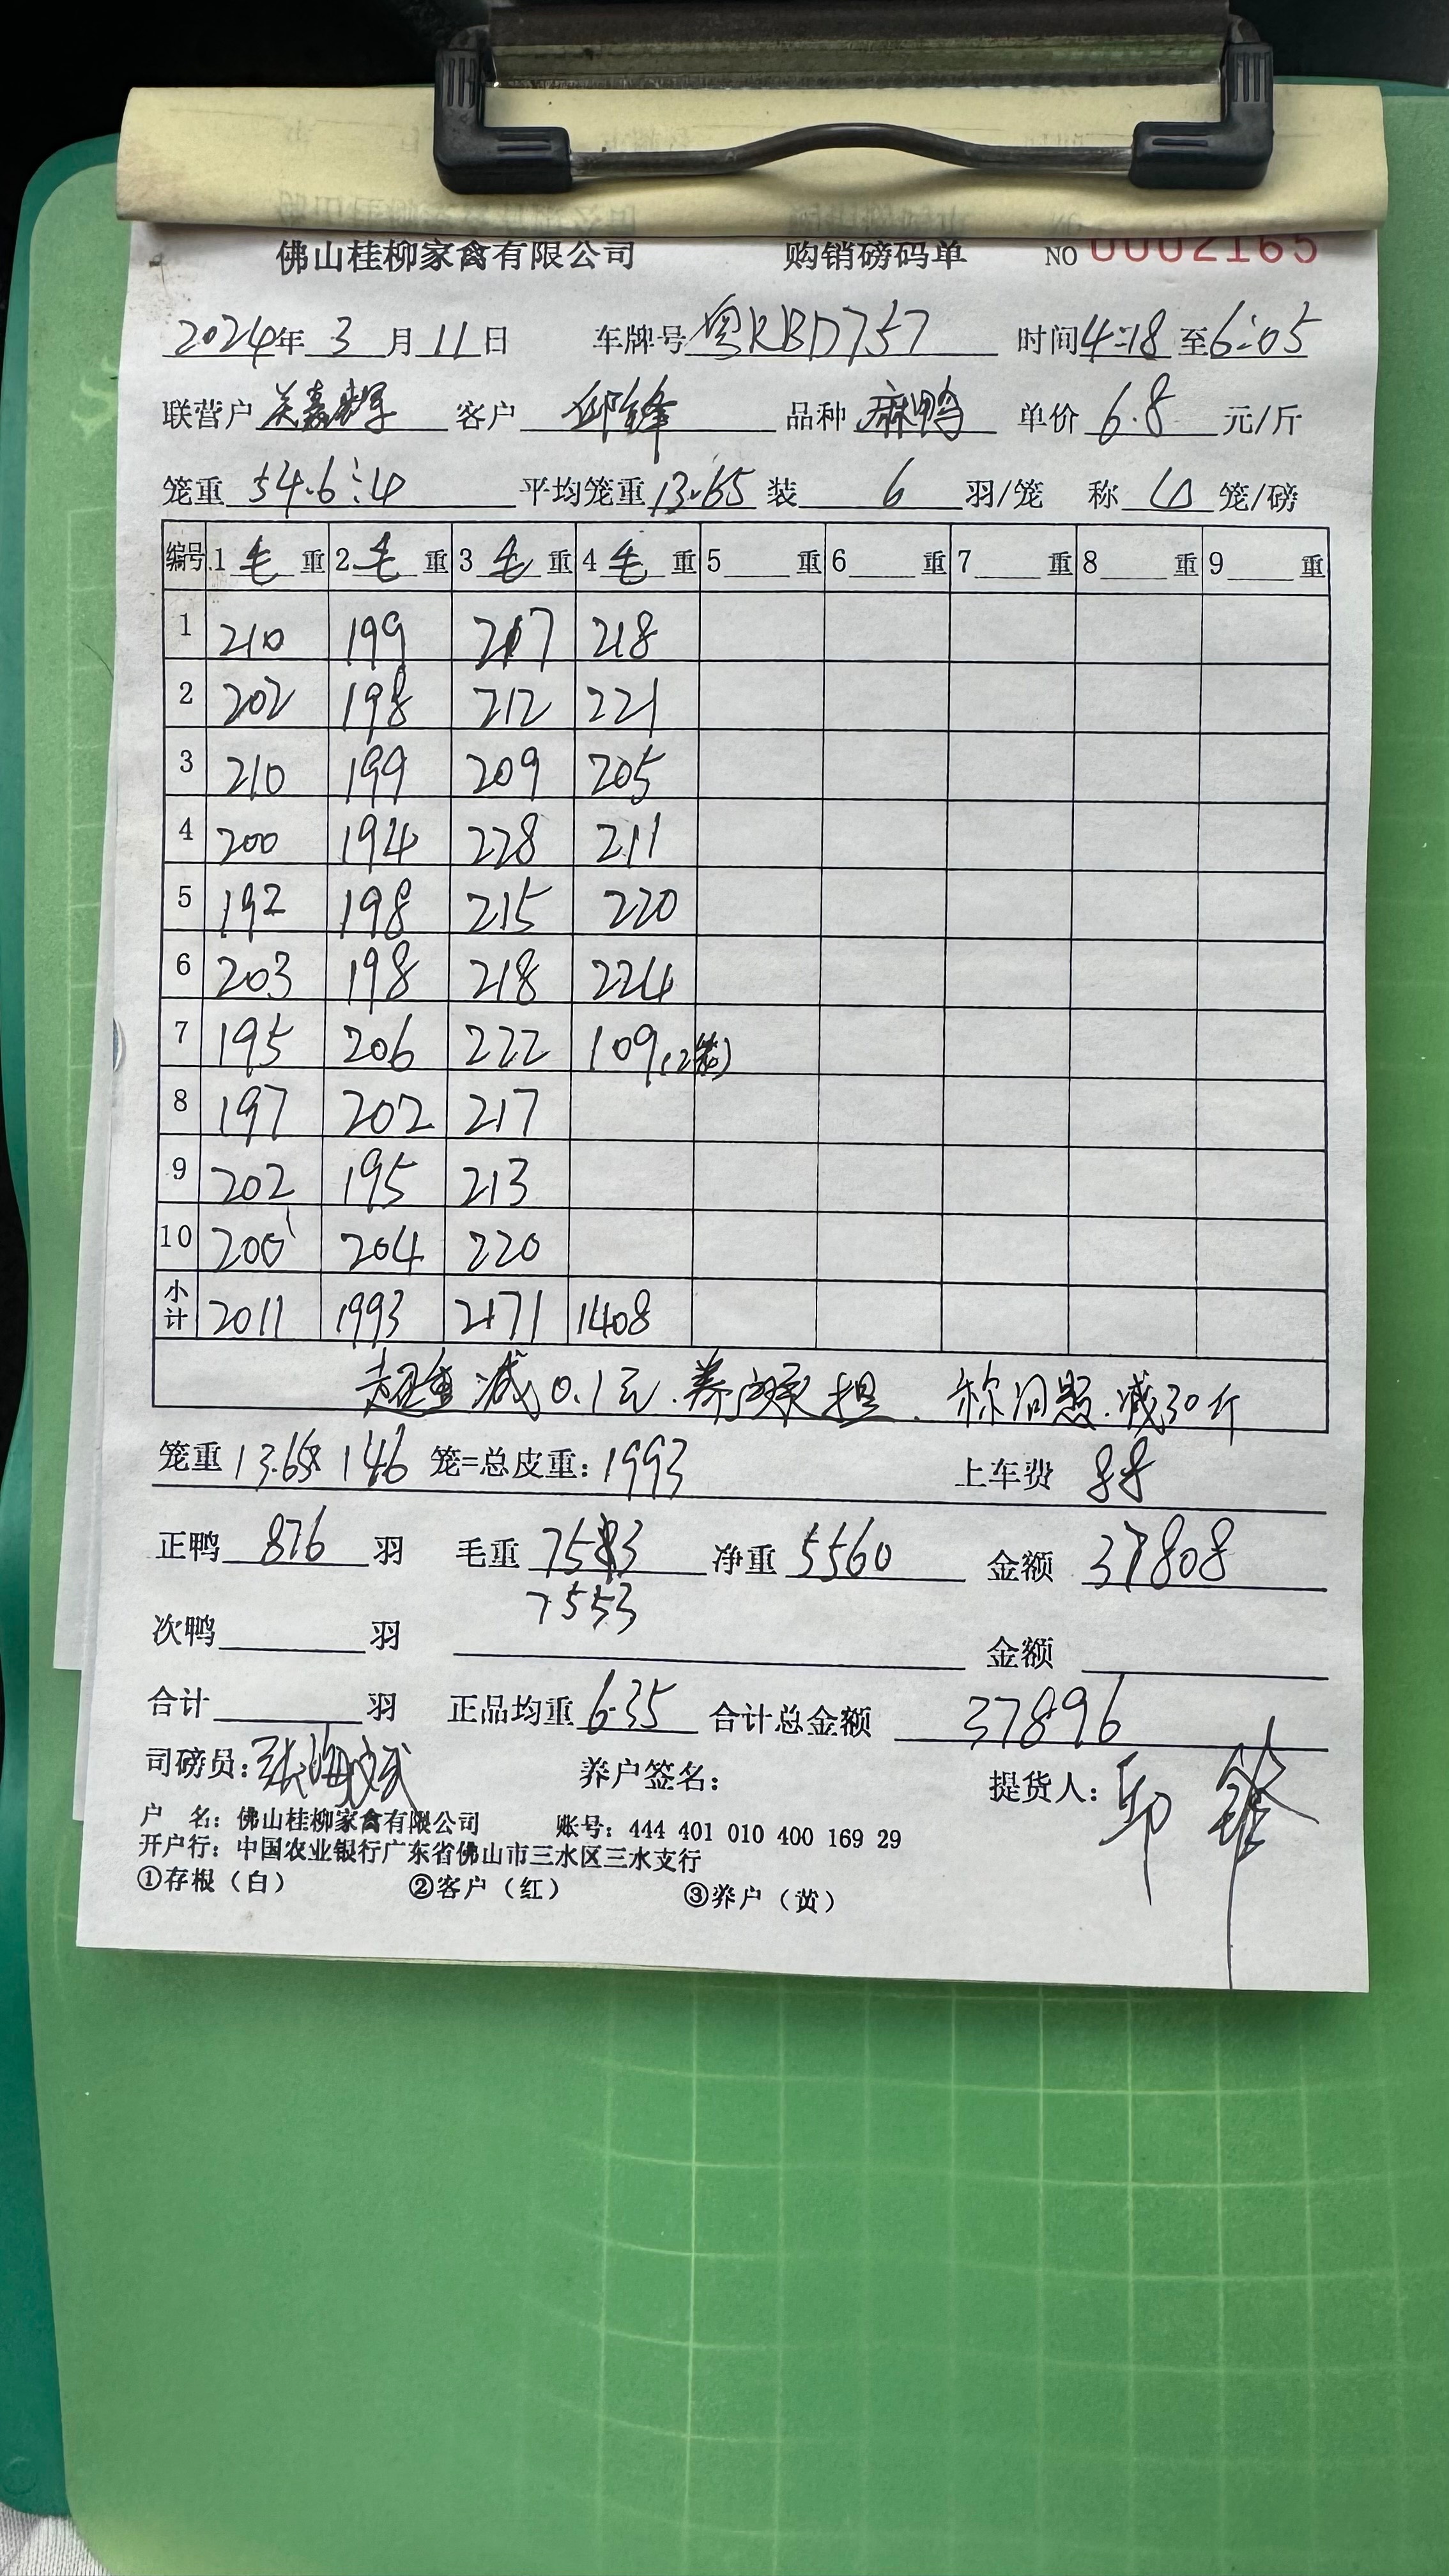 佛山桂柳家禽有限公司 购销磅码单 NO 0002165
2024年 3 月 11 日 车牌号 粤KBD757 时间 4:18 至 6:05
联营户 关嘉 客户 邱锋 品种 麻鸭 单价 6.8 元/斤
笼重 54.6÷4 平均笼重 13.65 装 6 羽/笼 称 4 笼/磅
编号 1 毛 重 2 毛 重 3 毛 重 4 毛 重 5 重 6 重 7 重 8 重 9 重
1 210 199 217 218
2 202 198 212 221
3 210 199 209 205
4 200 194 228 211
5 192 198 215 220
6 203 198 218 224
7 195 206 222 109(2笼)
8 197 202 217
9 202 195 213
10 200 204 220
小计 2011 1993 2171 1408
超重减0.1元.养户承担. 称问题.减30斤
笼重 13.65× 146 笼=总皮重: 1993 上车费 88
正鸭 876 羽 毛重 7583 净重 5560 金额 37808
7553
次鸭 羽 金额
合计 羽 正品均重 6.35 合计总金额 37896
司磅员: 张海斌 养户签名: 提货人: 邱锋
户 名: 佛山桂柳家禽有限公司 账号: 444 401 010 400 169 29
开户行: 中国农业银行广东省佛山市三水区三水支行
①存根（白） ②客户（红） ③养户（黄）